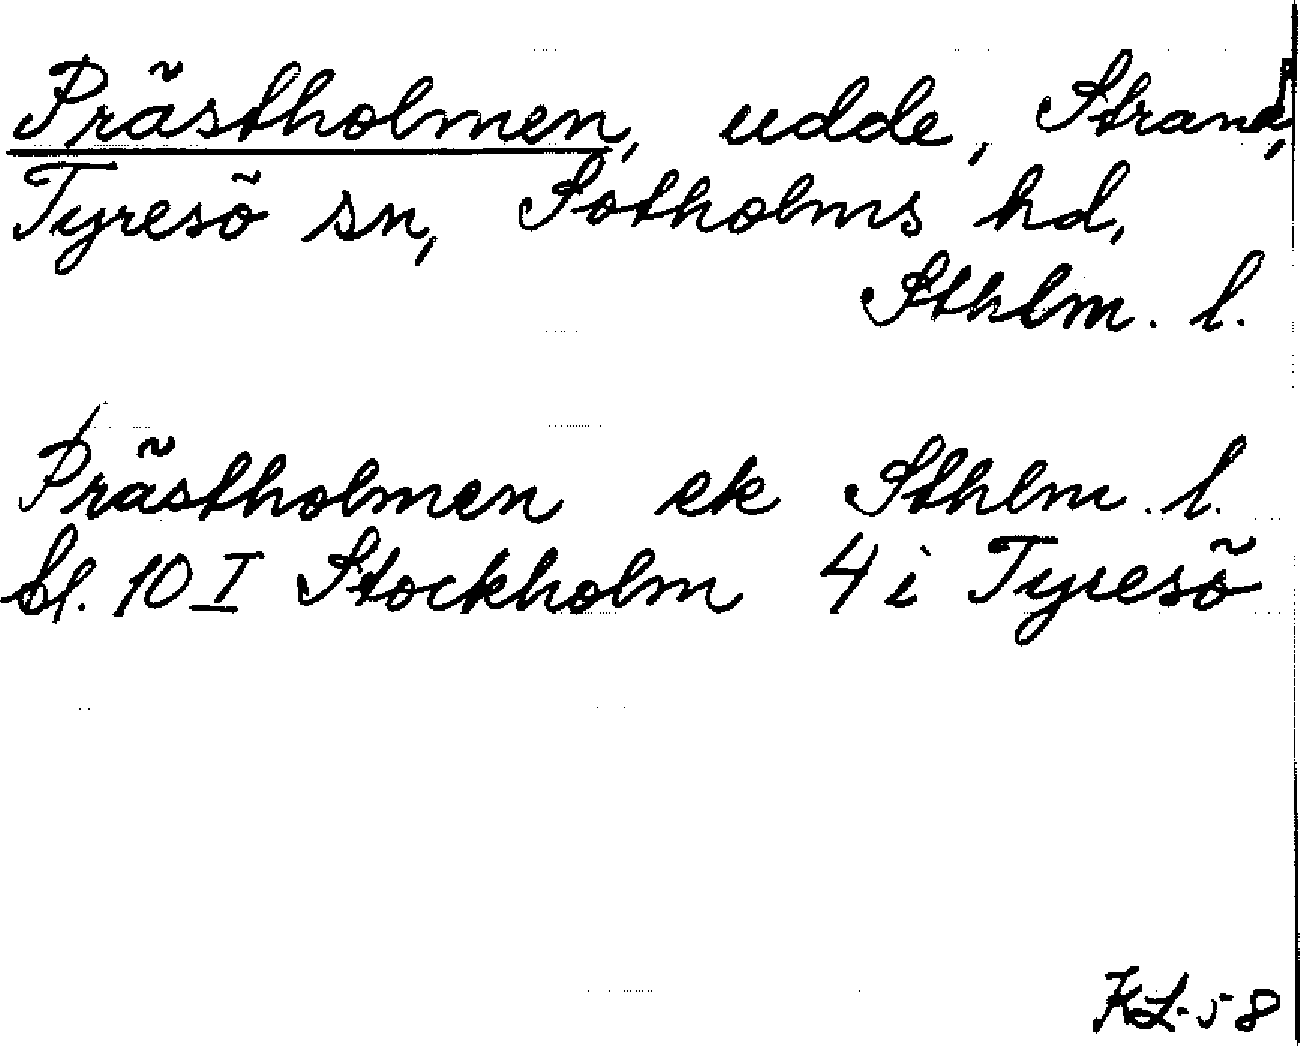 Prästholmen, udde, Strand,
Tyresö sn, Sotholms hd,
Sthlm. l.
Prästholmen ek Sthlm. l.
bl. 10 I Stockholm 4 i Tyresö
KL-58